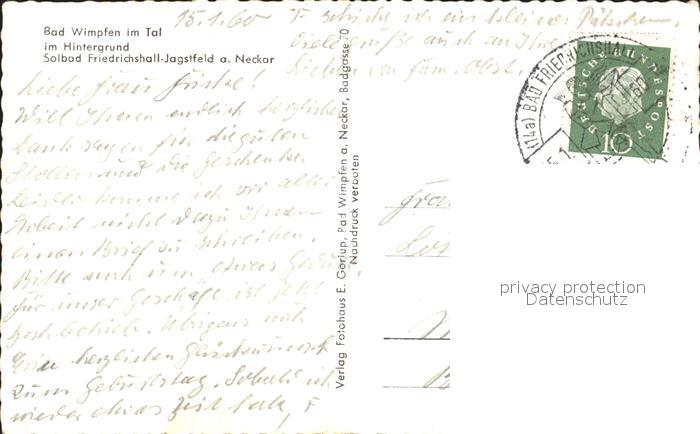 Bad Wimpfen im Tal
im Hintergrund
Solbad Friedrichshall-Jagstfeld a. Neckar
15.1.60
Liebe Frau
Will Ihnen endlich herzliche
Dank sagen für die guten
Stollen und die Geschenke
Leider komme ich vor aller
Arbeit nicht dazu Ihnen
einen Brief zu schreiben.
Bitte noch um etwas
für unser Geschäft ist jetzt
Hochbetrieb. Übrigens noch
herzlichen Glückwunsch
zum Geburtstag. Sobald ich
wieder etwas Zeit habe, F
F schicke ich ein kleines Päckchen.
Viele Grüße auch an Ihre
Lieben von Fam.
Verlag Fotohaus E. Goriup, Bad Wimpfen a. Neckar, Badgasse 70
Nachdruck verboten
(14a) BAD FRIEDRICHSHALL
DEUTSCHE BUNDESPOST
10
Frau
privacy protection
Datenschutz